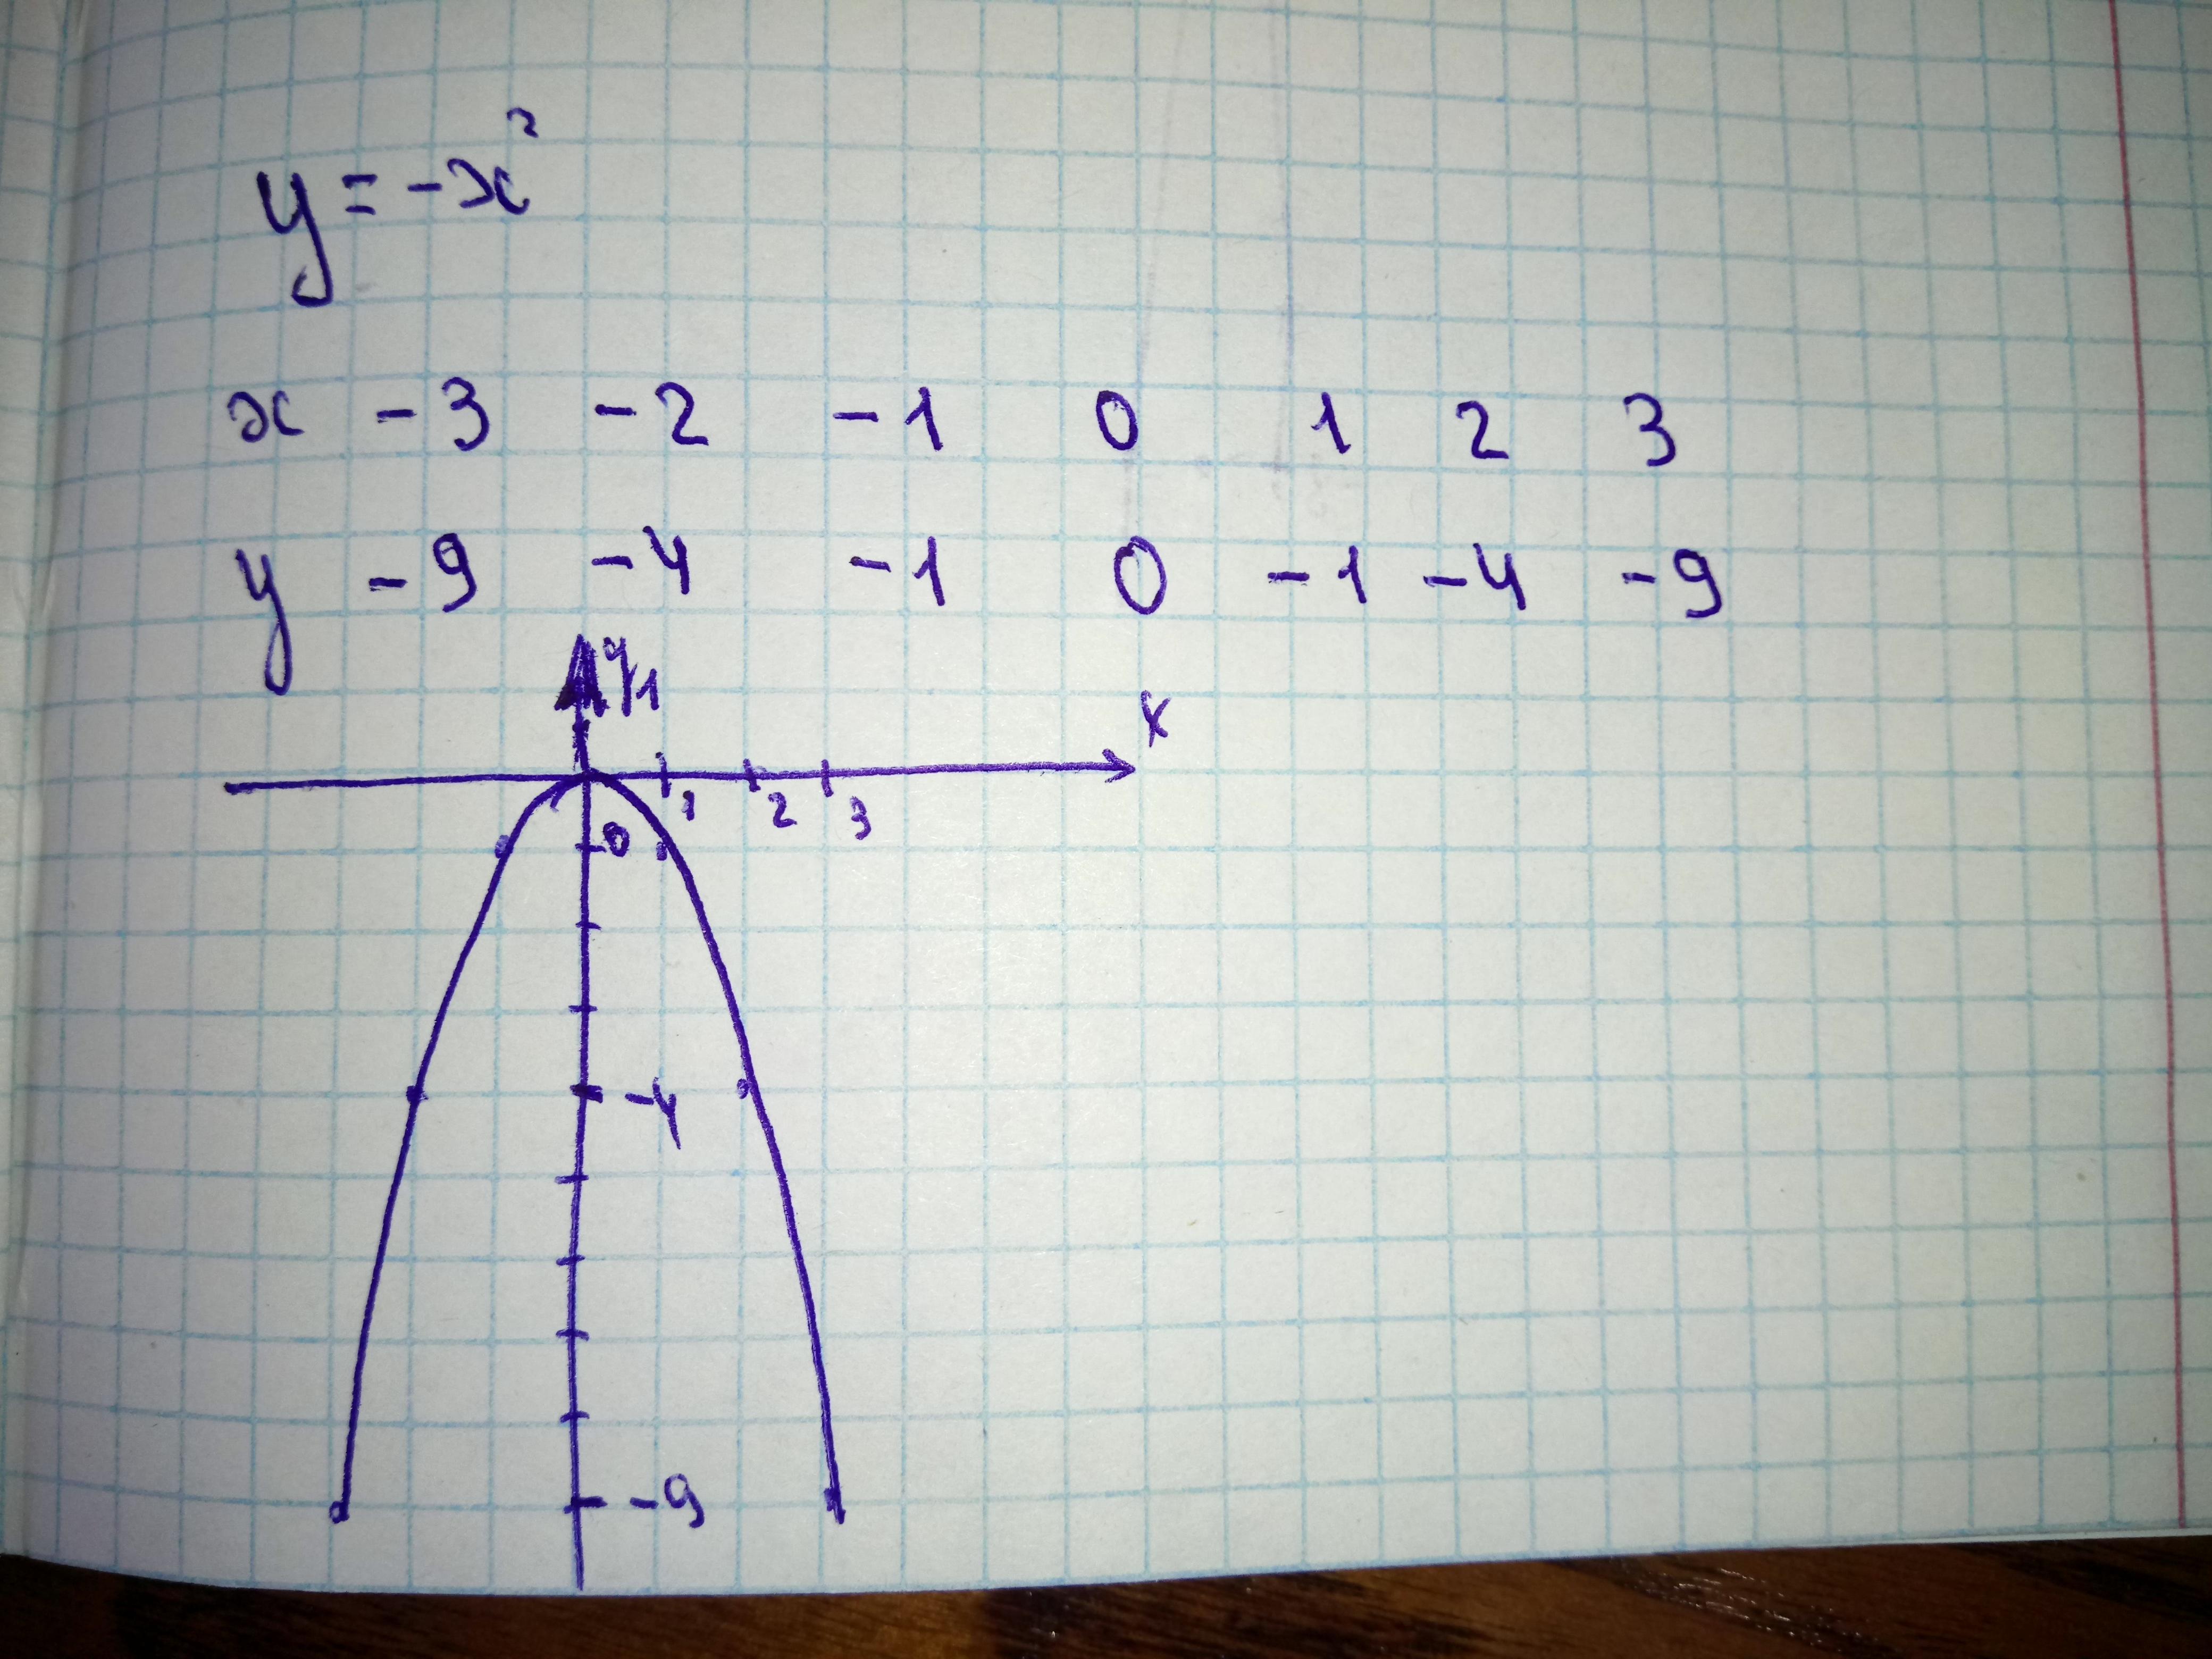 y = -x²
x -3 -2 -1 0 1 2 3
y -9 -4 -1 0 -1 -4 -9
y 1
x
1 2 3
0
-4
-9